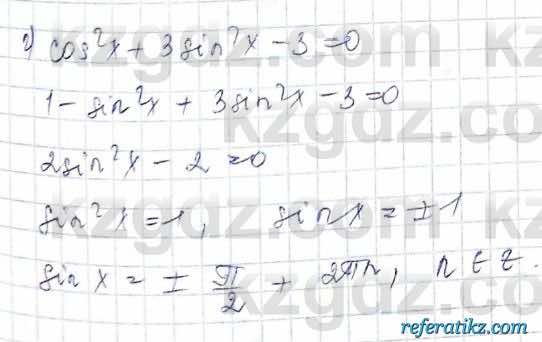 г) cos²x + 3sin²x - 3 = 0
1 - sin²x + 3sin²x - 3 = 0
2sin²x - 2 = 0
sin²x = 1, sin x = ±1
sin x = ± π/2 + 2πn, n ∈ Z.
kzgdz.com
referatikz.com